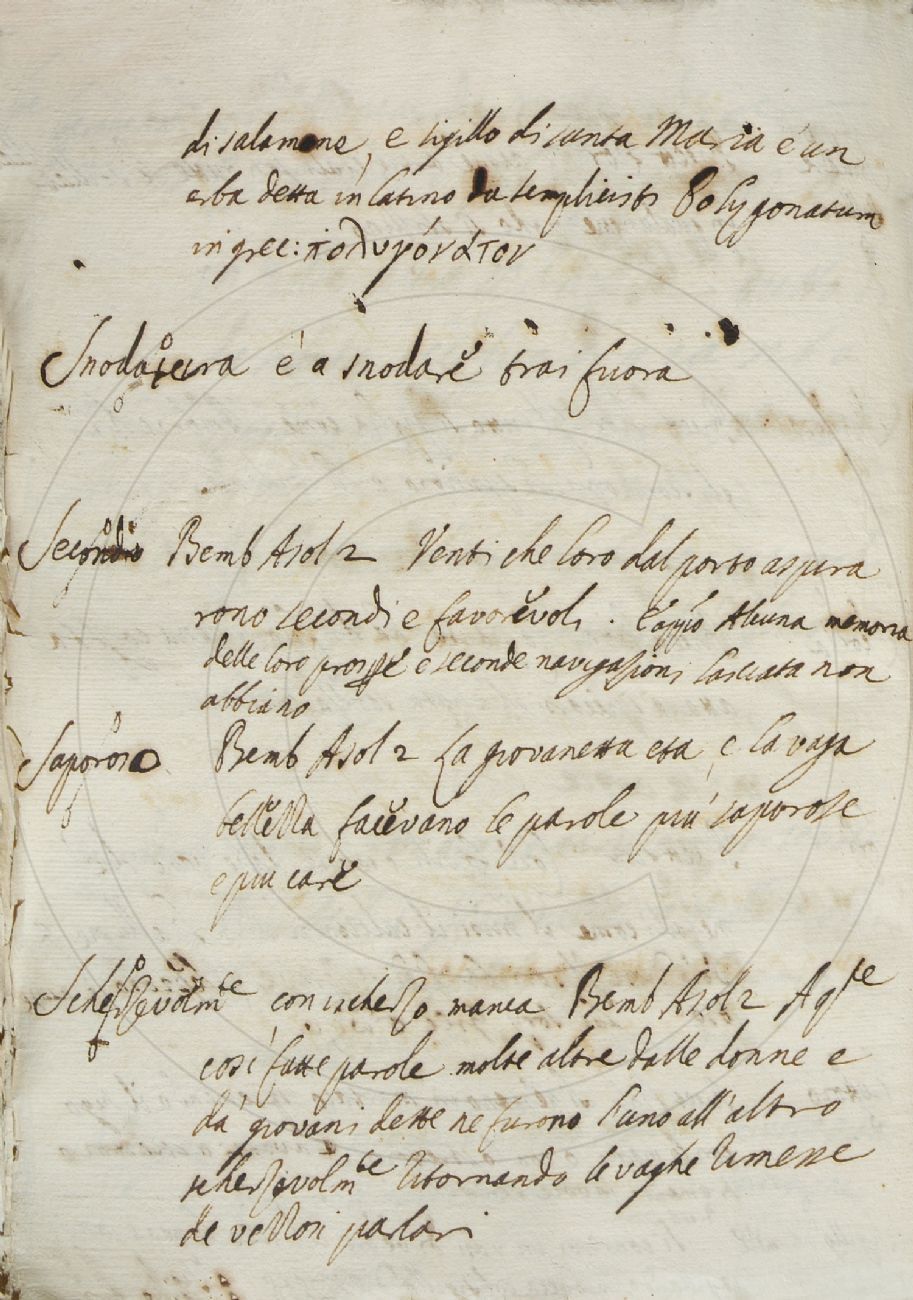 di salamone, e sigillo di santa Maria é un
erba detta in latino da semplicisti Polygonatum
in grec: πολυγόνατον
Snodatura é a snodare trai fuora
Secondo Bemb Asol 2 Venti che loro dal porto aspira
rono secondi e favorevoli. E appo Alcuna memoria
delle loro prospe e seconde navigazioni lasciata non
abbiano
Saporoso Bemb Asol 2 La giovanetta eta, e la vaga
bellezza facevano le parole piu saporose
e piu care
Scherzevolmte con ischerzo manca Bemb Asol 2 A qste
cosi fatte parole molte altre dalle donne e
da' giovani dette ne furono l'uno all'altro
scherzevolmte ritornando le vaghe rimesse
de vezzosi parlari